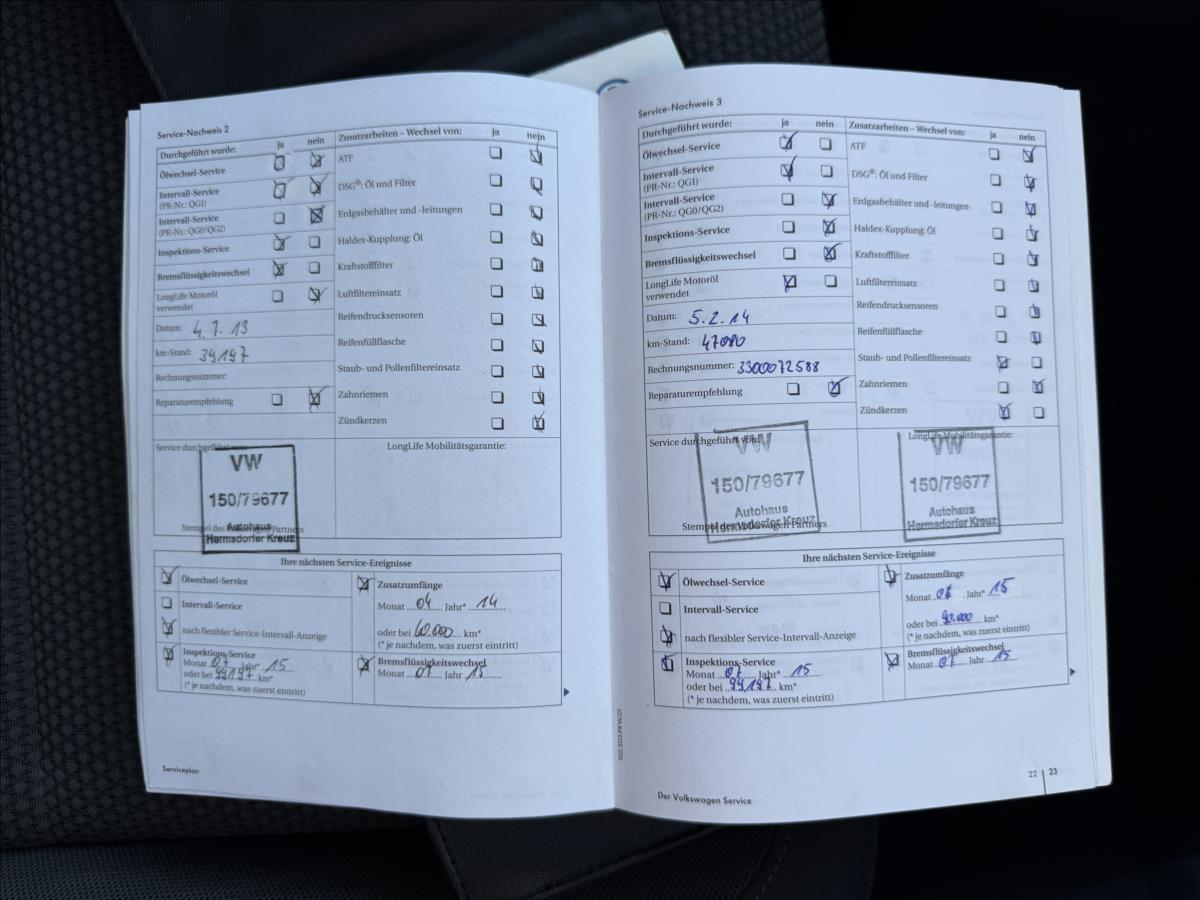 Service-Nachweis 2
Durchgeführt wurde: ja nein
Ölwechsel-Service
Intervall-Service
(PR-Nr.: QG1)
Intervall-Service
(PR-Nr.: QG0/QG2)
Inspektions-Service
Bremsflüssigkeitswechsel
LongLife Motoröl
verwendet
Datum: 4.7.13
km-Stand: 39197
Rechnungsnummer:
Reparaturempfehlung
Zusatzarbeiten – Wechsel von: ja nein
ATF
DSG®: Öl und Filter
Erdgasbehälter und -leitungen
Haldex-Kupplung: Öl
Kraftstofffilter
Luftfiltereinsatz
Reifendrucksensoren
Reifenfüllflasche
Staub- und Pollenfiltereinsatz
Zahnriemen
Zündkerzen
Service durchgeführt von:
LongLife Mobilitätsgarantie:
VW
150/79677
Autohaus
Hermsdorfer Kreuz
Stempel des Volkswagen Partners
Ihre nächsten Service-Ereignisse
Ölwechsel-Service
Intervall-Service
nach flexibler Service-Intervall-Anzeige
Inspektions-Service
Monat 07 Jahr* 15
oder bei 99197 km*
(* je nachdem, was zuerst eintritt)
Zusatzumfänge
Monat 04 Jahr* 14
oder bei 60.000 km*
(* je nachdem, was zuerst eintritt)
Bremsflüssigkeitswechsel
Monat 07 Jahr 15
Serviceplan
Service-Nachweis 3
Durchgeführt wurde: ja nein
Ölwechsel-Service
Intervall-Service
(PR-Nr.: QG1)
Intervall-Service
(PR-Nr.: QG0/QG2)
Inspektions-Service
Bremsflüssigkeitswechsel
LongLife Motoröl
verwendet
Datum: 5.2.14
km-Stand: 47080
Rechnungsnummer: 3300072588
Reparaturempfehlung
Zusatzarbeiten – Wechsel von: ja nein
ATF
DSG®: Öl und Filter
Erdgasbehälter und -leitungen
Haldex-Kupplung: Öl
Kraftstofffilter
Luftfiltereinsatz
Reifendrucksensoren
Reifenfüllflasche
Staub- und Pollenfiltereinsatz
Zahnriemen
Zündkerzen
Service durchgeführt von:
LongLife Mobilitätsgarantie:
VW
150/79677
Autohaus
Hermsdorfer Kreuz
Stempel des Volkswagen Partners
VW
150/79677
Autohaus
Hermsdorfer Kreuz
Ihre nächsten Service-Ereignisse
Ölwechsel-Service
Intervall-Service
nach flexibler Service-Intervall-Anzeige
Inspektions-Service
Monat 07 Jahr* 15
oder bei 99197 km*
(* je nachdem, was zuerst eintritt)
Zusatzumfänge
Monat Jahr* 15
oder bei 90.000 km*
(* je nachdem, was zuerst eintritt)
Bremsflüssigkeitswechsel
Monat 07 Jahr 15
Der Volkswagen Service
22 23